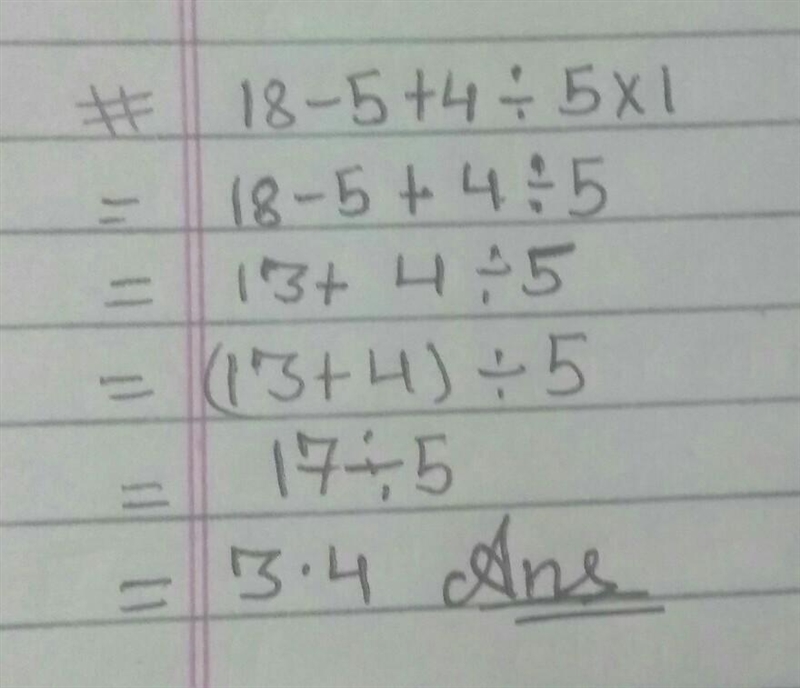 # 18-5+4÷5×1
= 18-5+4÷5
= 13+4÷5
= (13+4)÷5
= 17÷5
= 3.4 Ans